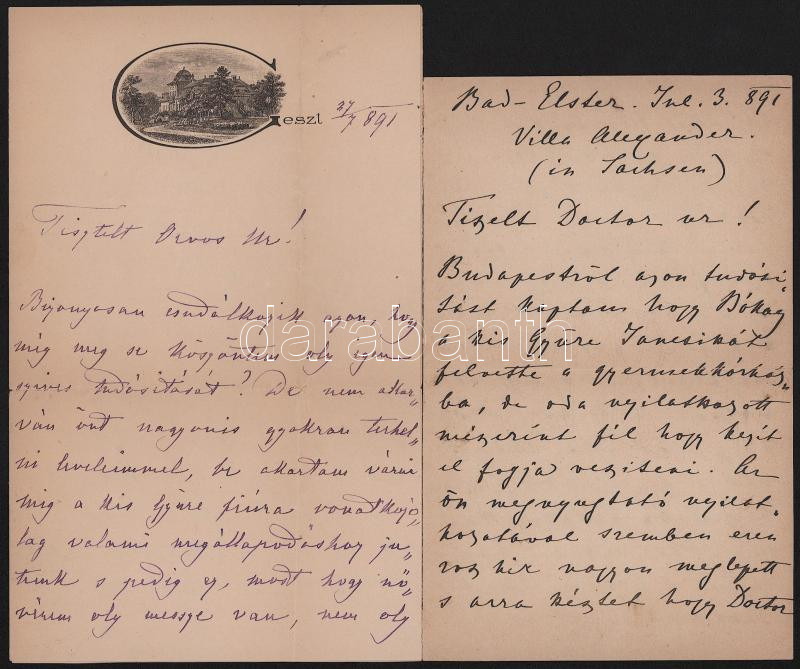 Geszt 27/7 891
Tisztelt Orvos Ur!
Bizonyosan csudálkozik azon, hogy
míg meg se köszöntem oly igen
szives tudósítását? De nem akar„
ván önt nagyonis gyakran terhel„
ni leveleimmel, be akartam várni
míg a kis Gyüre fiúra vonatkozó„
lag valami megállapodáshoz ju„
tunk s pedig ez, most hogy nő„
vérem oly messze van, nem oly
Bad-Elster. Jul. 3. 891
Villa Alexander.
(in Sachsen)
Tiszelt Doctor ur!
Budapestről azon tudósi„
tást kaptam hogy Bókay
a kis Gyüre Jancsikát
felvette a gyermekkórház„
ba, de oda nyilatkozott
miszerint fél hogy kezét
el fogja veszíteni. Az
ön megnyugtató nyilat„
kozatával szemben ezen
rosz hir nagyon meglepett
s arra késztet hogy Doctor
darabanth